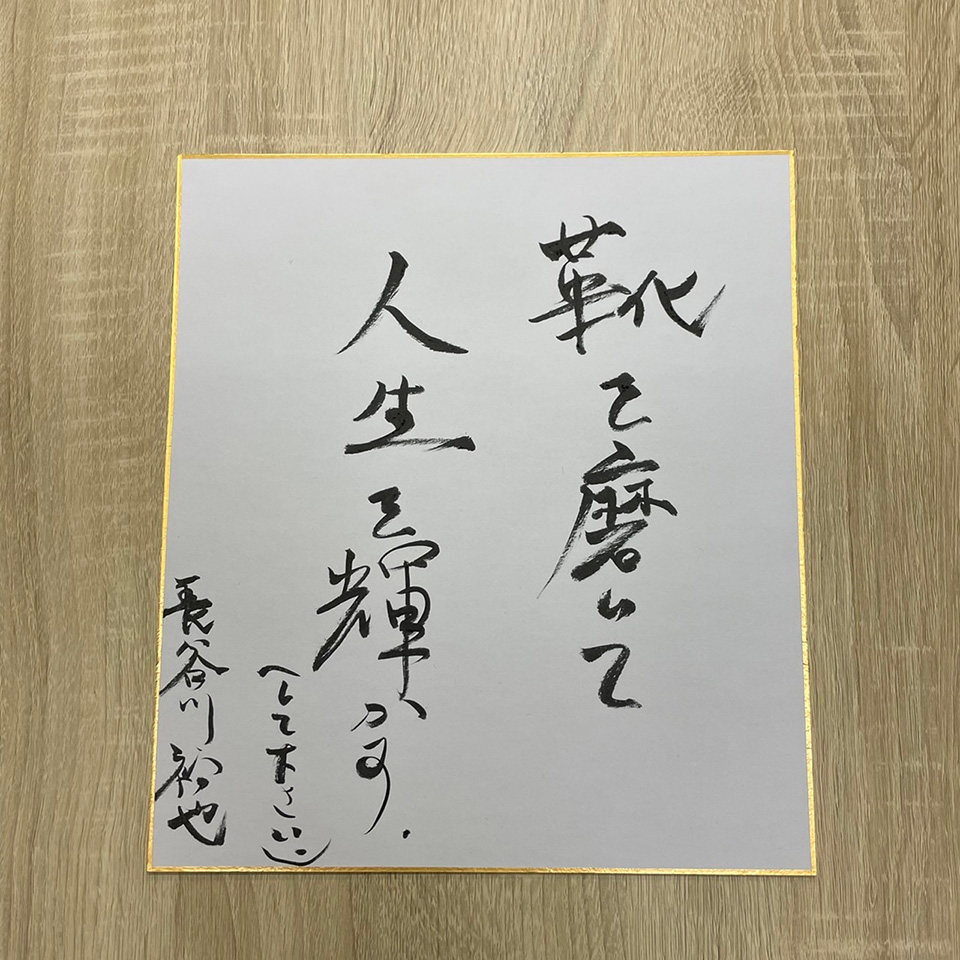 靴を磨いて
人生を輝かす.
(して下さい)
長谷川裕也